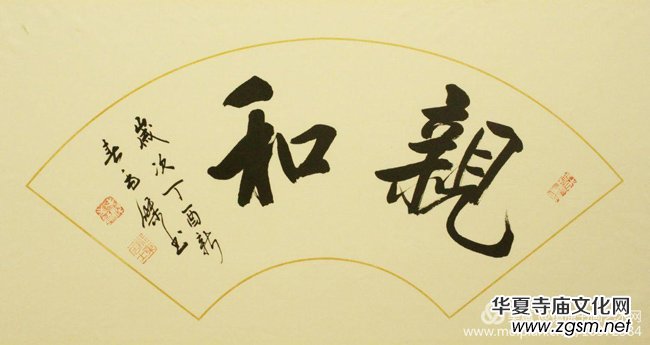 親和
歲次丁酉新
春高书
华夏寺庙文化网
www.zgsm.net